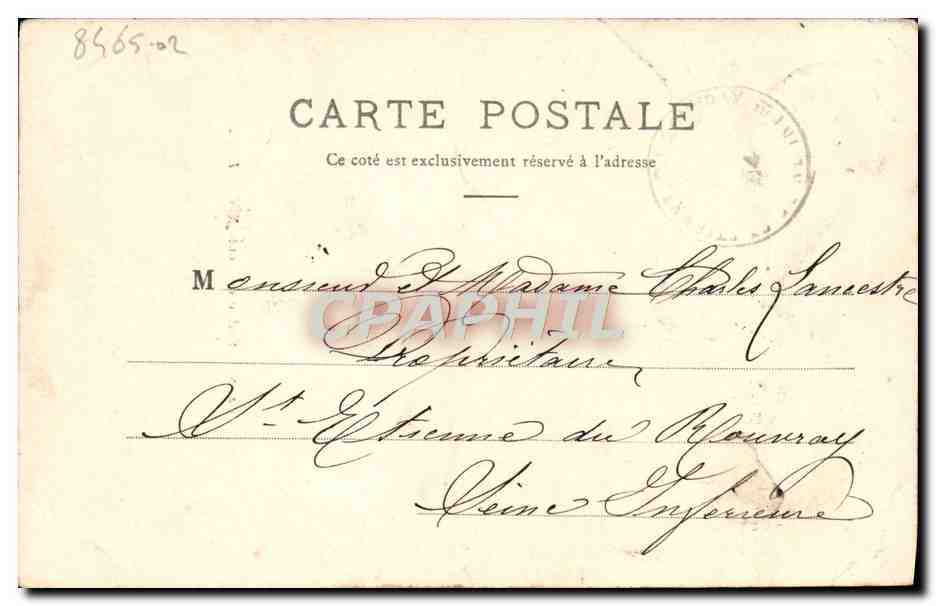 8465-02
CARTE POSTALE
Ce coté est exclusivement réservé à l'adresse
Monsieur et Madame Charles Lancestre
CPAPHIL
Propriétaire
St. Etienne du Rouvray
Seine Inférieure